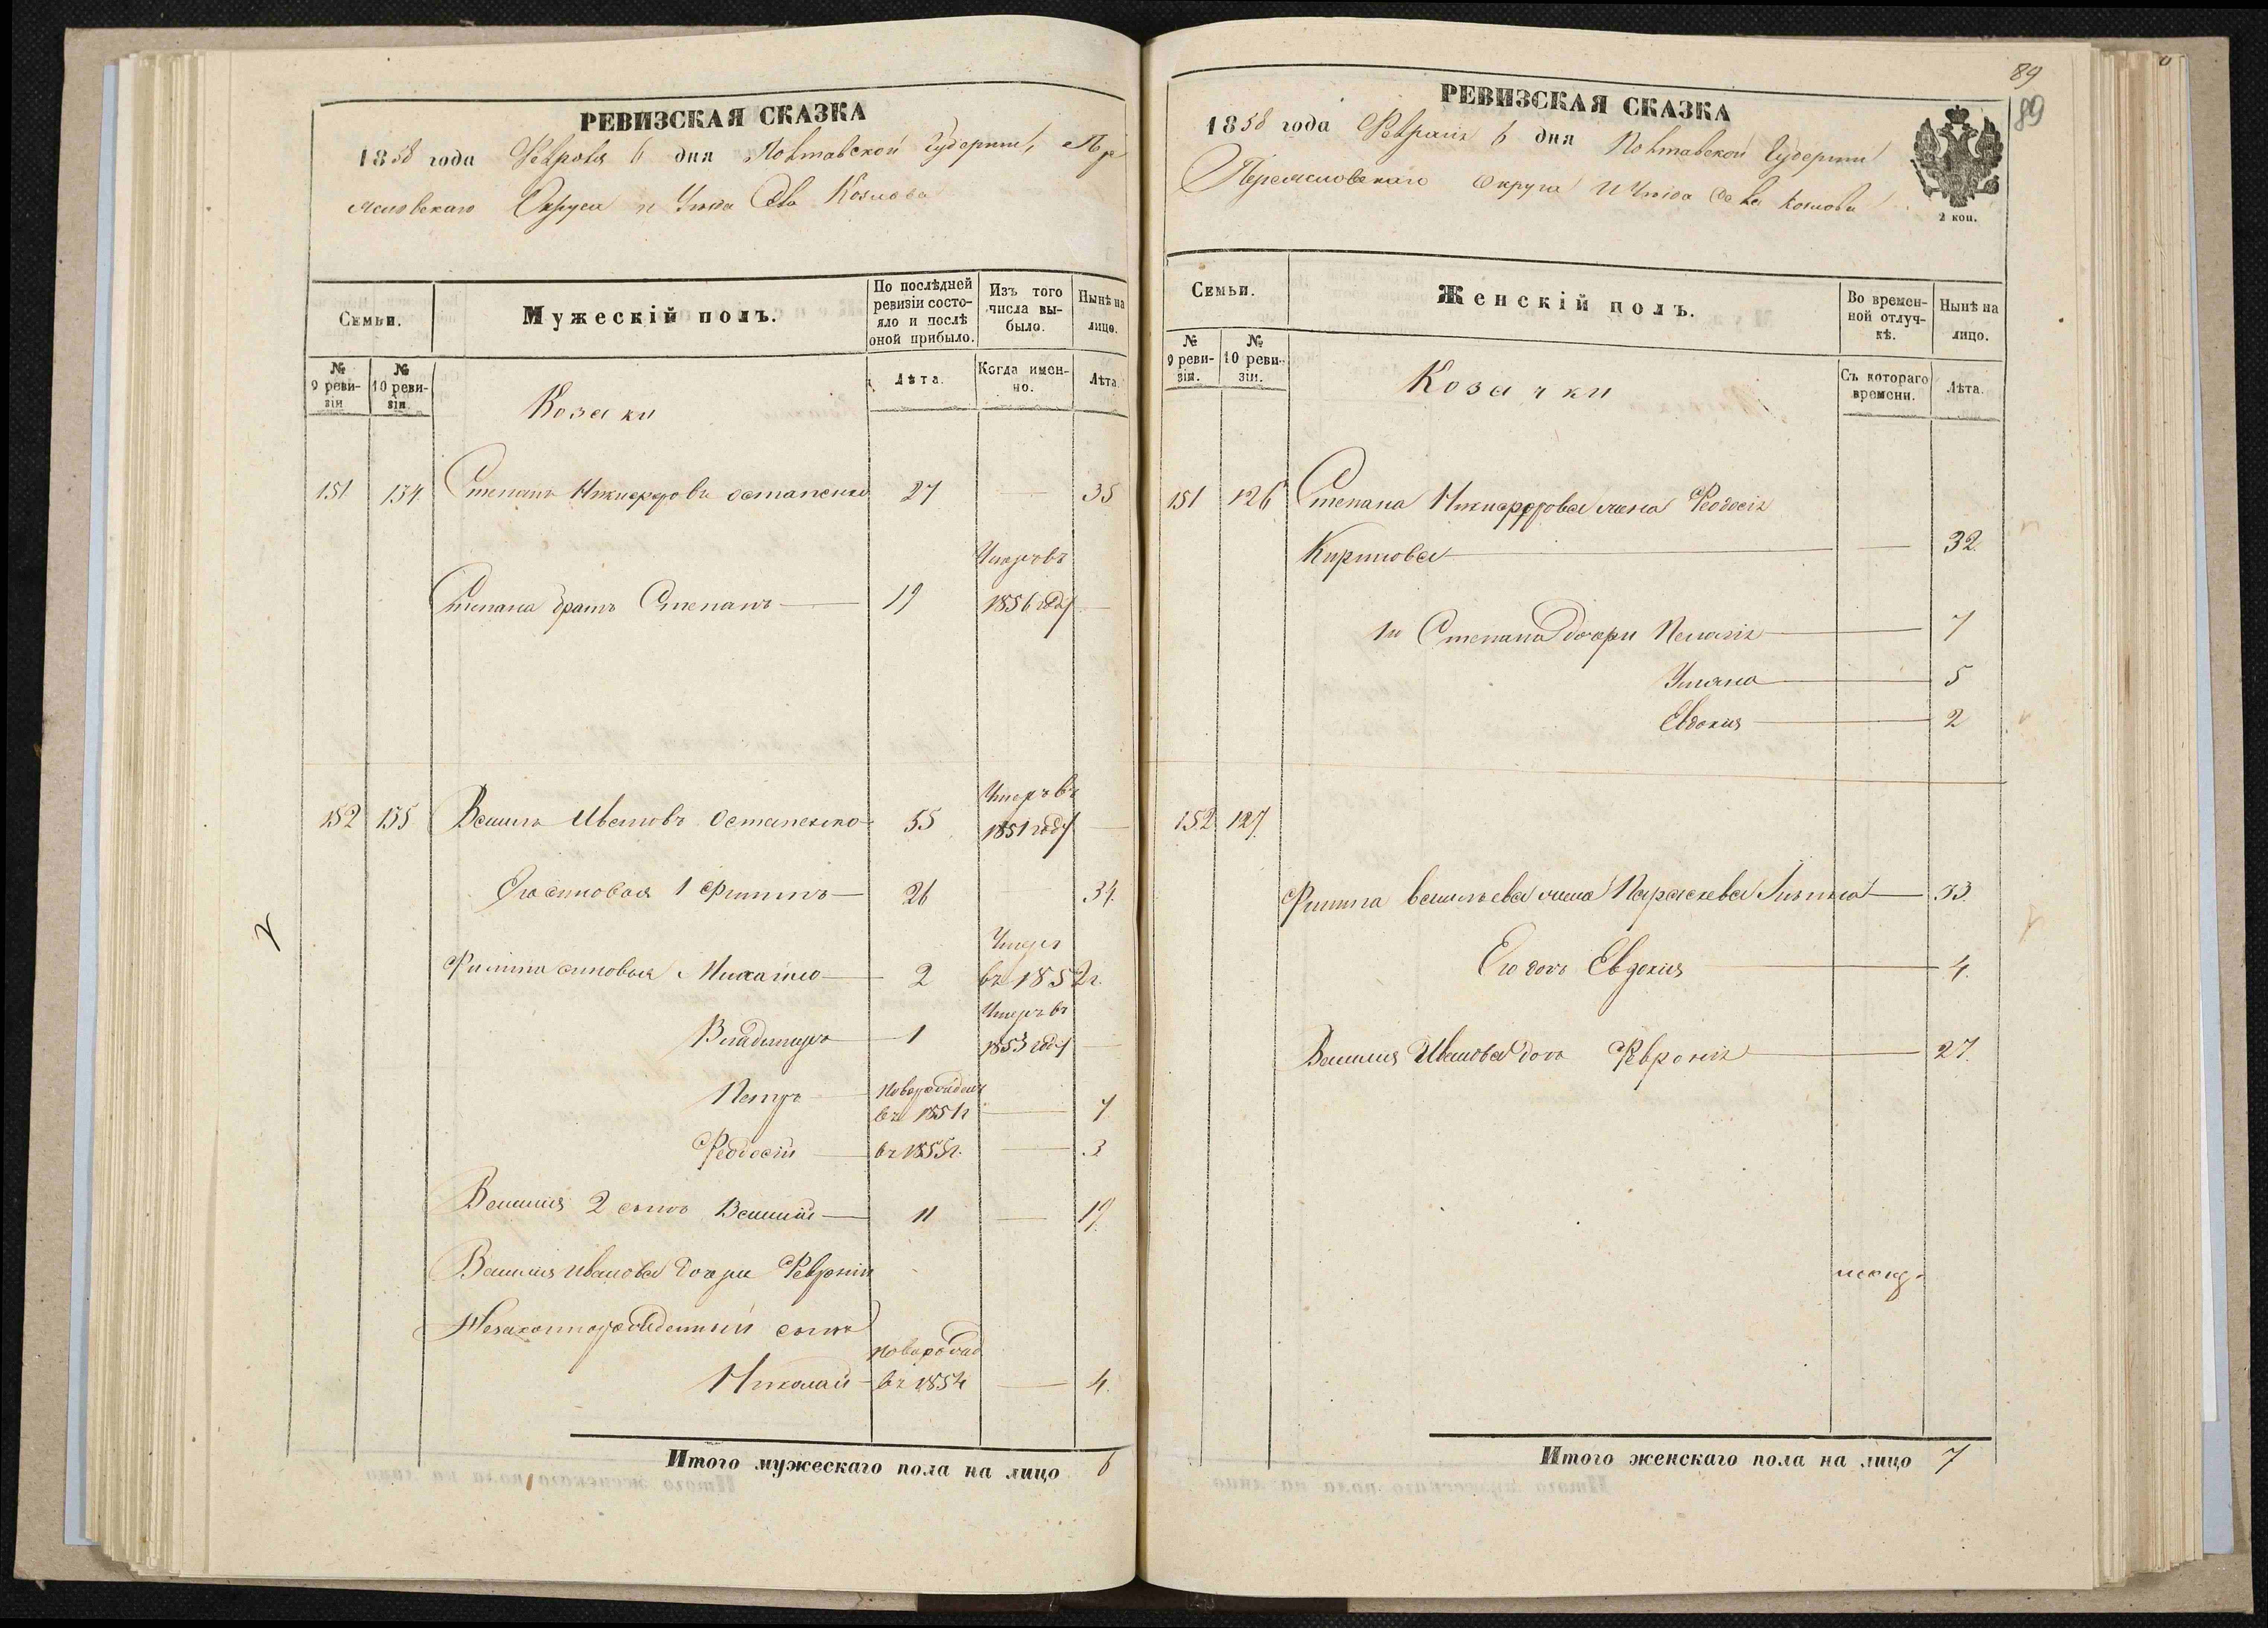 РЕВИЗСКАЯ СКАЗКА
1858 года Февраля 6 дня Полтавской Губернии, Пере
яславскаго Округа и Уѣзда Села Козлова
Семьи.
Мужескій полъ.
По послѣдней ревизіи состояло и послѣ оной прибыло.
Изъ того числа выбыло.
Нынѣ на лицо.
№ 9 ревизіи
№ 10 ревизіи.
Козаки
Лѣта.
Когда именно.
Лѣта.
151 134 Степанъ Никифоровъ Остапенко 27 — 35
Умеръ въ
Степана братъ Степанъ — 19 1856 году —
Умеръ въ
152 135 Василь Ивановъ Остапенко 55 1851 году —
Его сыновья 1 Филипъ — 26 34.
Умеръ
Филипа сыновья Михайло — 2 въ 1852 г.
Умеръ въ
Владимиръ — 1 1853 году —
Петръ — Новорожденъ въ 1851 г — 7
Феодосій — въ 1855 г. — 3
Василия 2 сынъ Василій — 11 — 19.
Василия Иванова дочери Февроніи
Незаконнорожденный сынъ
новорожд
Николай — въ 1854 — 4.
Итого мужескаго пола на лицо 6
89
89
РЕВИЗСКАЯ СКАЗКА
1858 года Февраля 6 дня Полтавской Губернии
Переяславскаго Округа и Уѣзда Села Козлова
2 коп.
Семьи.
Женскій полъ.
Во временной отлучкѣ.
Нынѣ на лицо.
№ 9 ревизіи.
№ 10 ревизіи.
Козачки
Съ котораго времени.
Лѣта.
151 126 Степана Никифорова жена Феодосія
Кирилова — — 32.
1й Степана дочери Пелагія — 7
Уляна — 5
Евдокия — 2
152 127
Филипа Васильева жена Параскева — 33.
Его дочь Евдокия — 4.
Василия Иванова дочь Февронія — 27.
Итого женскаго пола на лицо 7